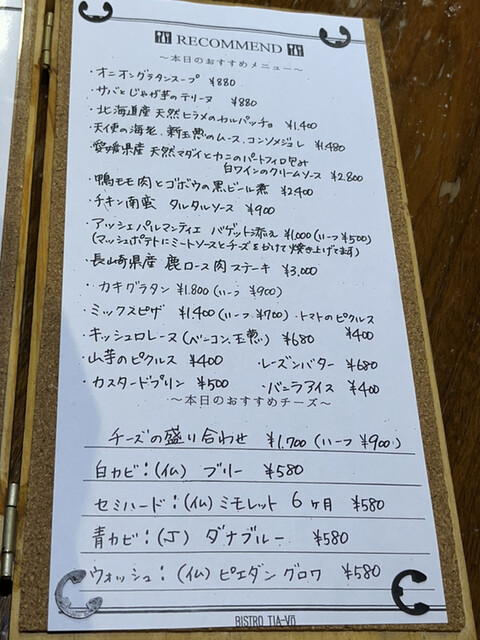 RECOMMEND
～本日のおすすめメニュー～
・オニオングラタンスープ ¥880
・サバとじゃが芋のテリーヌ ¥880
・北海道産 天然ヒラメのカルパッチョ ¥1.400
・天使の海老、新玉葱のムース、コンソメジュレ ¥1.480
・愛媛県産 天然マダイとカニのパートフィロ包み
白ワインのクリームソース ¥2.800
・鴨モモ肉とゴボウの黒ビール煮 ¥2.400
・チキン南蛮 タルタルソース ¥900
・アッシェパルマンティエ バゲット添え ¥1,000(ハーフ ¥500)
(マッシュポテトにミートソースとチーズをかけて焼き上げてます)
・長崎県産 鹿ロース肉ステーキ ¥3,000
・カキグラタン ¥1.800(ハーフ ¥900)
・ミックスピザ ¥1,400(ハーフ ¥700) ・トマトのピクルス
¥400
・キッシュロレーヌ(ベーコン、玉葱) ¥680
・山芋のピクルス ¥400 ・レーズンバター ¥680
・カスタードプリン ¥500 ・バニラアイス ¥400
～本日のおすすめチーズ～
チーズの盛り合わせ ¥1,700(ハーフ ¥900)
白カビ:(仏) ブリー ¥580
セミハード:(仏)ミモレット 6ヶ月 ¥580
青カビ:(J) ダナブルー ¥580
ウォッシュ:(仏)ピエダングロワ ¥580
BISTRO TIA-Vo